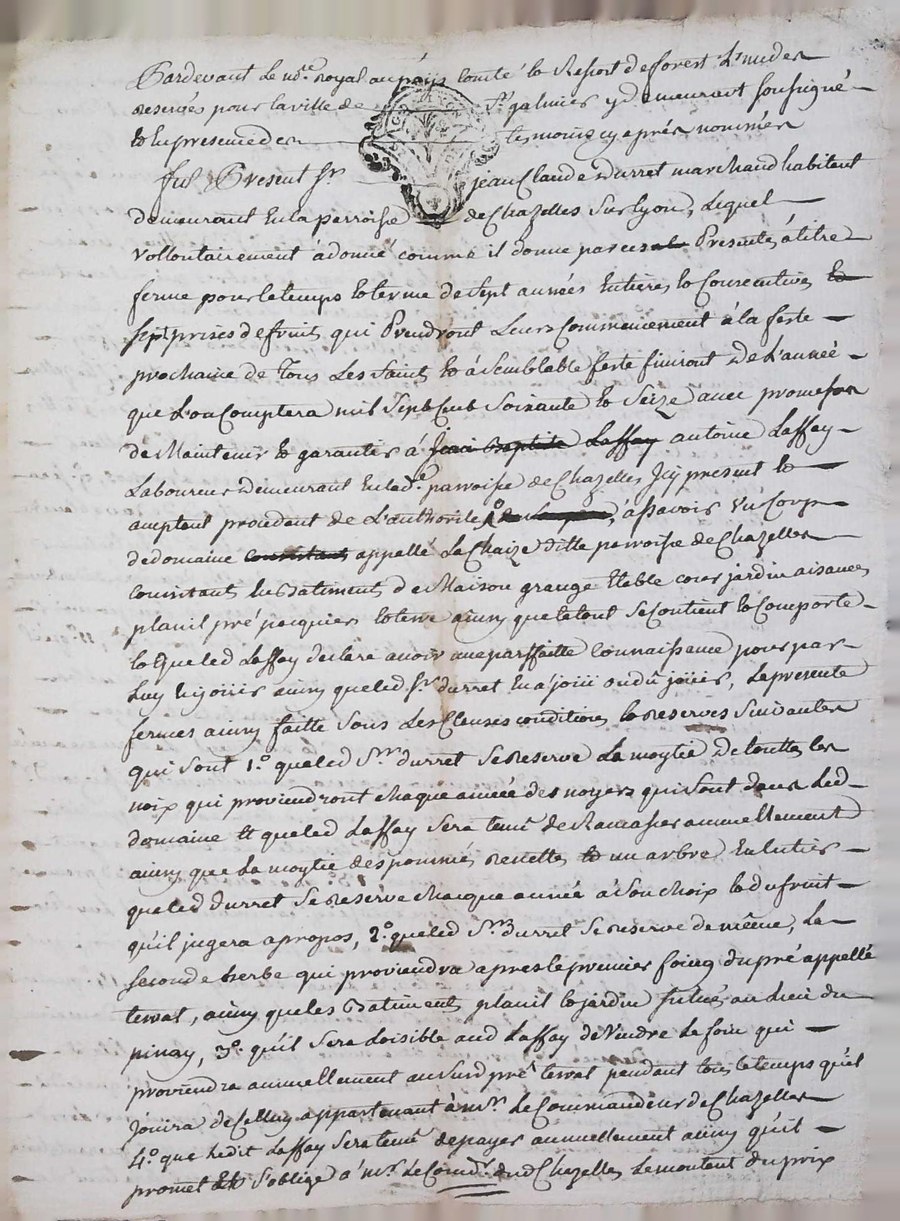 Pardevant Le n.re royal au païs Comté & Resort de forest L'un des
reservés pour la ville de St. galmier y demeurant soussigné
& En presence des tesmoins cy après nommés
fut Present Sr. jean Claude Durret marchand habitant
demeurant En la parroisse de Chazelles Sur lyon, Lequel
vollontairement à donné comme il donne par ces Presentes à titre
ferme pour le temps & terme de Sept années Entieres & Consecutives &
Sept prises de fruits qui Prendront Leurs Commencement à la feste
prochaine de Tous Les Saints & à Semblable feste finiront de L'année
que L'on Comptera mil Sept Cent Soixante & Seize avec promesse
de Maintenir & garantir à Jean Baptiste Laffay antoine Laffay
Laboureur demeurant En lad.e parroisse de Chazelles Icy present &
acceptant procedant de L'authorité à sçavoir Un Corps
de domaine Consistant appellé La Chaize ditte parroisse de Chazelles
Consistant En Batiments de Maison grange Etable cour jardin aisances
planil pré paquier & terre ainsy que le tout Se Contient & Comporte
& que led Laffay declare avoir une parffaitte Connaissance pour par
Luy En joüir ainsy que led Sr. durret En a joüi ou dû joüir, La presente
fermes ainsy faitte Sous Les Clauses conditions & reserves Suivantes
qui Sont 1.o que led Sr. durret Se Reserve La moytié de touttes les
noix qui proviendront chaque année des noyers qui Sont dans Led
domaine Et que led Laffay Sera tenu de Ramasser annuellement
ainsy que La moytié des pommes renettes & un arbre En Entier
que led durret Se reserve chacque année à Son choix & du fruit
qu'il jugera apropos, 2.o que led Sr. durret Se reserve de même, La
seconde herbe qui proviendra apres le premier foing du pré appellé
terrat, ainsy que les Batiments planil & jardin Situés au Lieu du
pinay, 3.o qu'il Sera Loisible aud Laffay de Vendre Le foin qui
proviendra annuellement au Susd pré terrat pendant tous le temps qu'il
Joüira de Celluy appartenant à Mr. Le Commandeur de Chazelles
4.o que Ledit Laffay Sera tenu de payer annuellement ainsy qu'il
promet & S'oblige à Mr. Le Comd.r dud Chazelles Le montant du prix